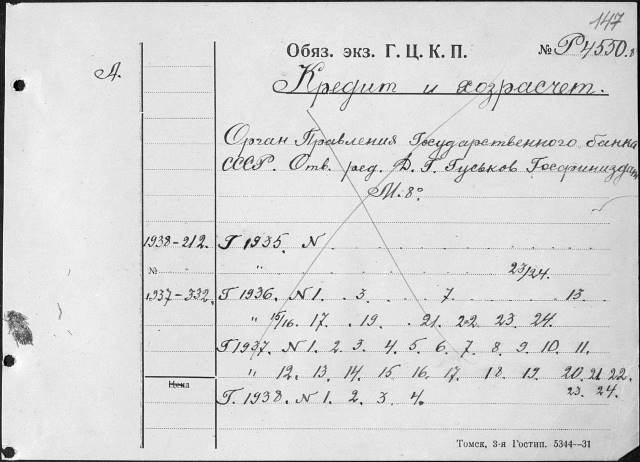 147
Обяз. экз. Г. Ц. К. П. № Р4550.
А.
Кредит и хозрасчет.
Орган Правления Государственного банка
СССР. Отв. ред. Д. Г. Гуськов Госфиниздат
М. 8°
1938-212. Г 1935. N
" 23/24.
№
1937-332. Г 1936. N 1. 3. 7. 13.
" 15/16. 17. 19. 21. 22. 23. 24.
Г 1937. N 1. 2. 3. 4. 5. 6. 7. 8. 9. 10. 11.
" 12. 13. 14. 15. 16. 17. 18. 19. 20. 21. 22.
Цена
23. 24.
Г. 1938. N 1. 2. 3. 4.
Томск, 3-я Гостип. 5344—31